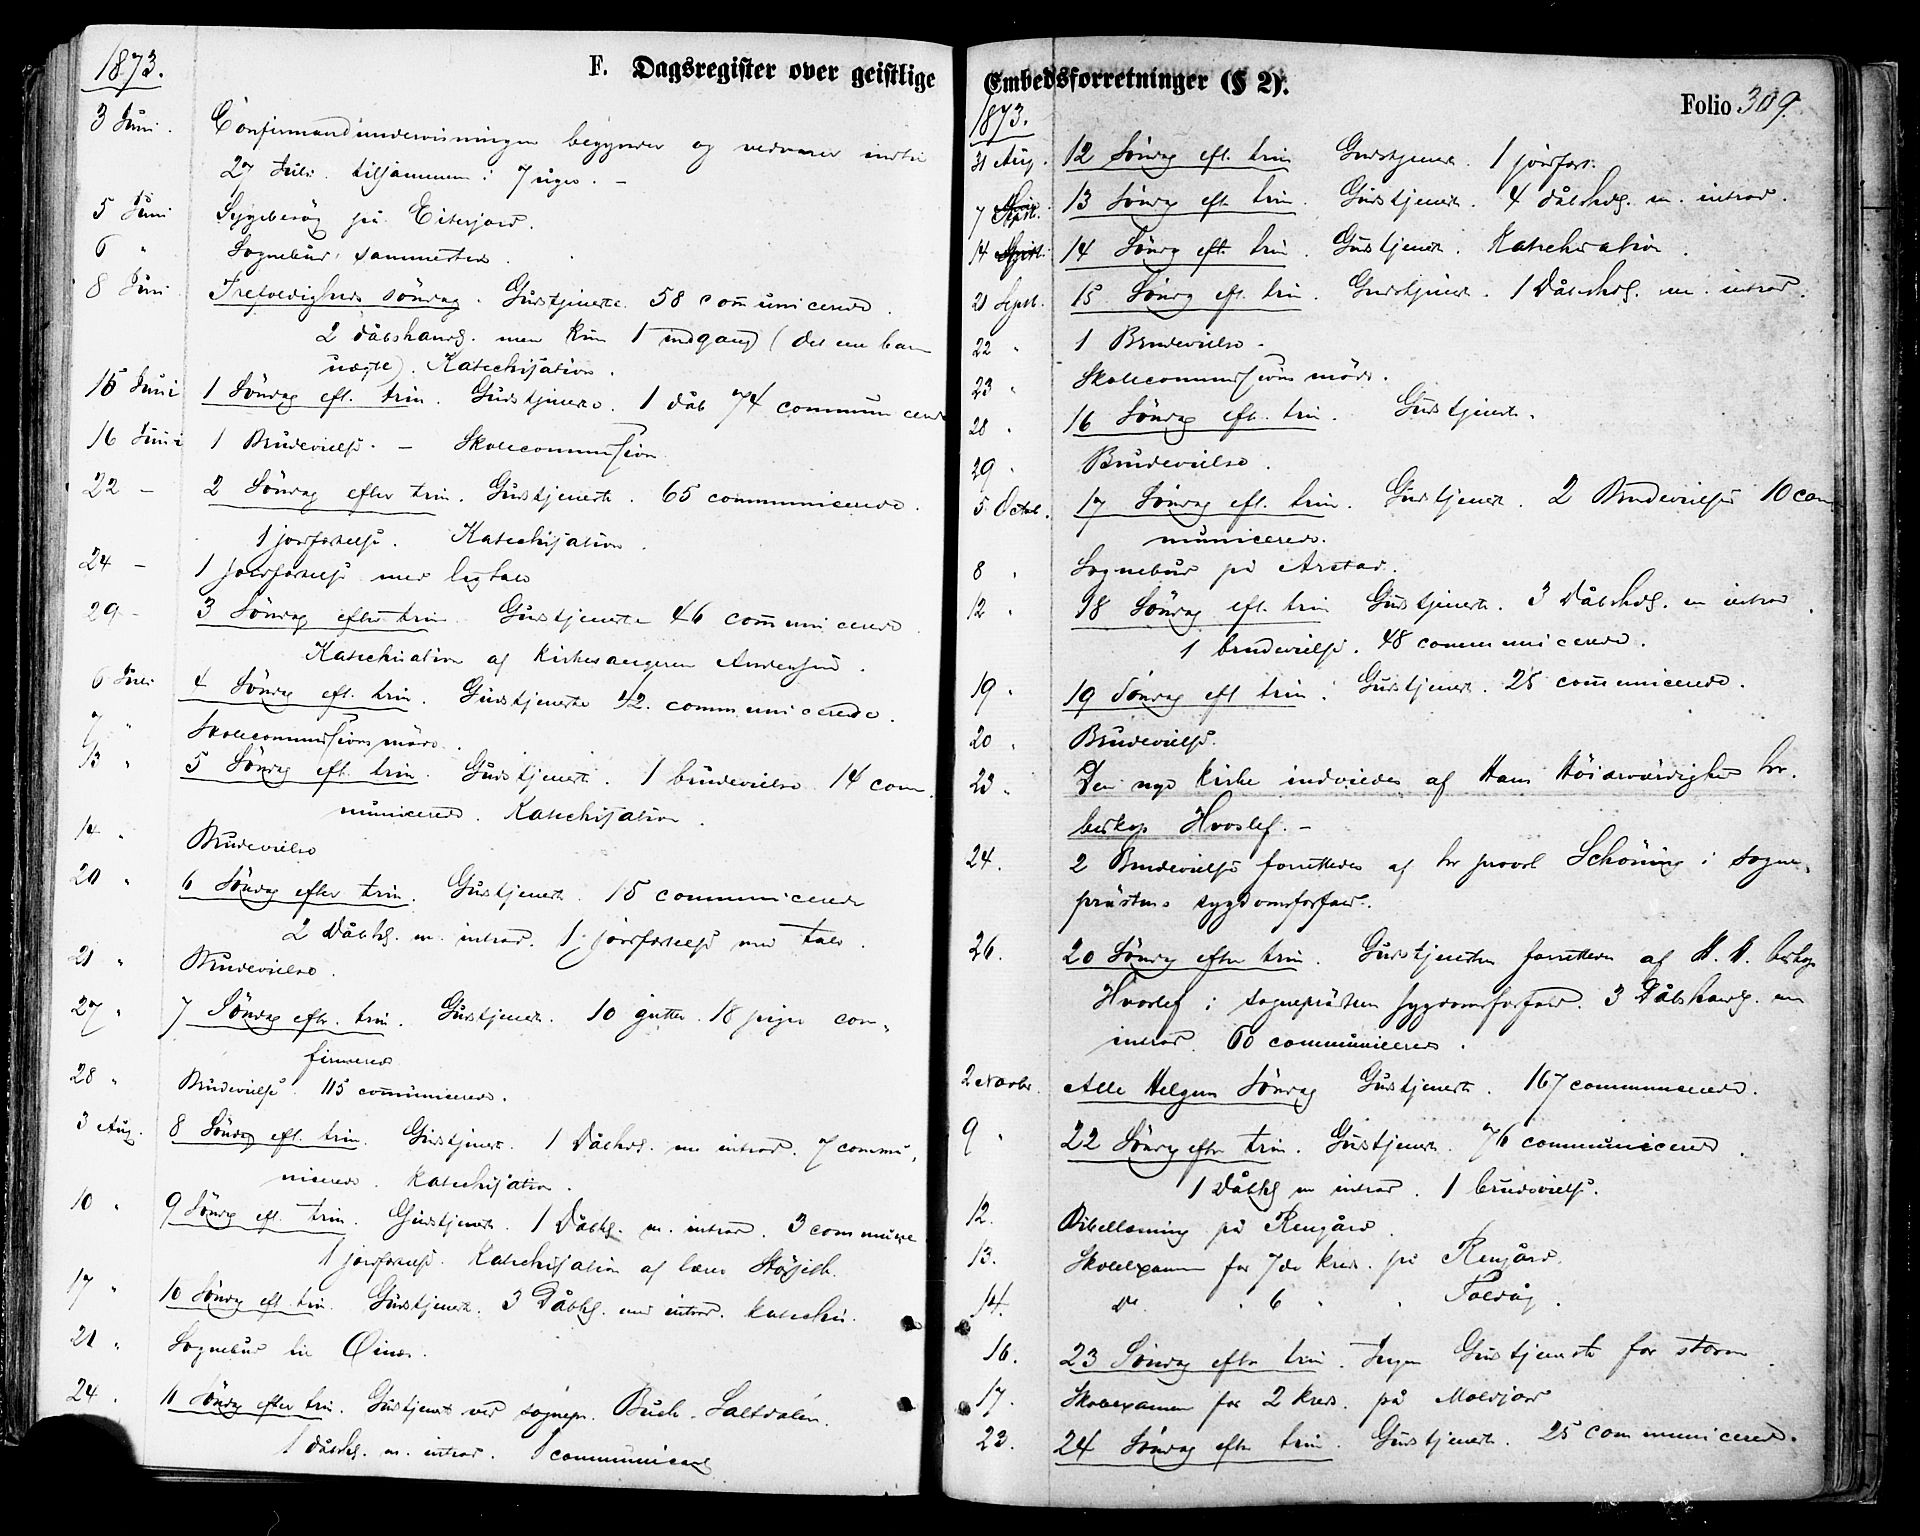 1873.
F. Dagsregister over geistlige
3 Juni. Confirmandundervisningen begynder og vedvarer indtil
27 Juli. tilsammen: 7 uger. –
5 Juni Sygebesøg på Eiterjord.
6 " Sognebud sammesteds.
8 Juni Trefoldigheds söndag. Gudstjeneste. 58 communicerede.
2 dåbshandl. men kun 1 indgang (det ene barn
uægte). Katechisation.
15 Juni 1 Söndag eft. trin. Gudstjeneste. 1 dåb 74 communicerede
16 Juni 1 Brudevielse. – Skolecommission
22 – 2 Söndag efter trin. Gudstjeneste. 65 communicerede.
1 jordfæstelse. Katechisation.
24 – 1 jordfæstelse med ligtale
29 – 3 Söndag efter trin. Gudstjeneste 46 communicerede.
Katechisation af kirkesangeren
6 Juli 4 Söndag eft. trin. Gudstjeneste 42. communicerede.
7 " Skolecommissionsmöde.
13 " 5 Söndag eft. trin. Gudstjeneste. 1 brudevielse 14 com
municerede. Katechisation.
14 " Brudevielse
20 " 6 Söndag efter trin. Gudstjeneste. 15 communicerede
2 Dåbhl. m. introd. 1 jordfæstelse med tale.
21 " Brudevielse.
27 " 7 Söndag eftr. trin. Gudstjenest. 10 gutter 18 piger con„
firmerede
28 " Brudevielse. 115 communicerede.
3 Aug. 8 Söndag eft. trin. Gudstjenest. 1 Dåbhdl. m introd. 7 commu„
nicerede. Katechisation.
10 " 9 Söndag eft. trin. Gudstjeneste. 1 Dåbhl. m. introd. 3 commune
1 jordfæstelse. Katechisation af lærer
17 " 10 Söndag eft. trin. Gudstjeneste. 3 Dåbhl. med introd. Katechis.
21 " Sognebud til Öines.
24 . 11 Söndag efter trin. Gudstjenest ved sognepr. Buch. Saltdalen.
1 dåbshl. m. introd. communicant
Embedsforretninger (§ 2).
Folio 309.
1873.
31 Aug. 12 Söndag eft. trin Gudstjenest. 1 jordfæst.
7 Sept. 13 Söndag eft. trin. Gudstjenest. 4 dåbshdl. m. introd.
14 14 Söndag eft. trin. Gudstjenest. Katechisation.
21 Septb. 15 Söndag eft. trin. Gudstjenest. 1 Dåbshdl. m. introd.
22 " 1 Brudevielse.
23 " Skolecommissions möde.
28 " 16 Söndag eft. trin. Gudstjenest.
29 " Brudevielse.
5 Octob. 17 Söndag eft. trin. Gudstjenest. 2 Brudevielser 10 com
municerede.
8 " Sognebud på Arstad.
12 " 18 Söndag eft. trin Gudstjeneste. 3 Dåbshdl. m introd.
1 brudevielse. 48 communicerede.
19 " 19 Söndag eft trin. Gudstjenest. 25 communicerede.
20 " Brudevielse.
23 " Den nye kirke indviedes af Hans Höiærværdighed hr.
biskop Hvoslef. –
24. 2 Brudevielser forrettedes af hr provst Schöning i sogne„
præstens sygdomsforfald.
26. 20 Söndag efter trin. Gudstjenesten forrettedes af H. H. biskop
Hvoslef i sognepræstens sygdomsforfald. 3 Dåbshandl. m
introd. 60 communicerede.
2 Novbr. Alle Helgens Söndag Gudstjenest. 167 communicerede.
9 " 22 Söndag eftr trin. Gudstjenest. 76 communicerede.
1 Dåbhl m introd. 1 brudevielse.
12. Bibellæsning på Rengård.
13. Skoleexamen for 7de kreds. på Rengård.
14. Do. " 6 " " Toldåg.
16. 23 Söndag eftr trin. Ingen Gudstjeneste for storm.
17. Skoleexamen for 2 kreds. på Moldjord
23. 24 Söndag eftr trin. Gudstjenest. 25 communicerede.